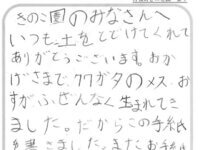 きのこ園のみなさんへ
いつも土をとどけてくれて
ありがとうございます。おか
げさまでクワガタのメス、お
すがぶじぜんなく生まれてき
ました。だからこの手紙
を書きました。またお手紙